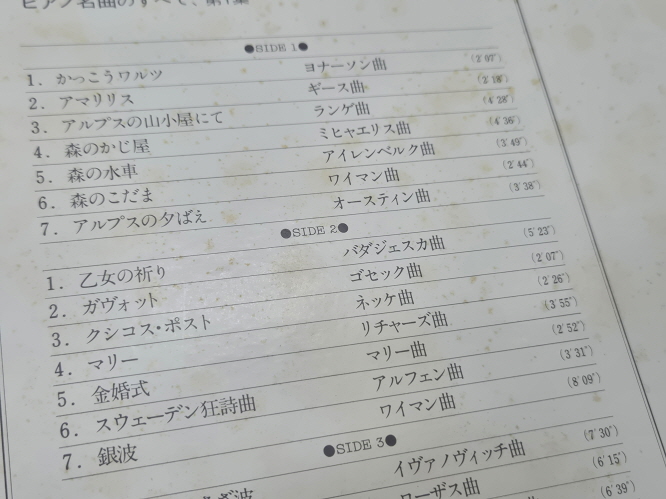 ピアノ名曲のすべて、第1集
●SIDE 1●
1. かっこうワルツ ヨナーソン曲 (2′07″)
2. アマリリス ギース曲 (2′18″)
3. アルプスの山小屋にて ランゲ曲 (4′28″)
4. 森のかじ屋 ミヒャエリス曲 (4′36″)
5. 森の水車 アイレンベルク曲 (3′49″)
6. 森のこだま ワイマン曲 (2′44″)
7. アルプスの夕ばえ オースティン曲 (3′38″)
●SIDE 2●
1. 乙女の祈り バダジェスカ曲 (5′23″)
2. ガヴォット ゴセック曲 (2′07″)
3. クシコス・ポスト ネッケ曲 (2′26″)
4. マリー リチャーズ曲 (3′55″)
5. 金婚式 マリー曲 (2′52″)
6. スウェーデン狂詩曲 アルフェン曲 (3′31″)
7. 銀波 ワイマン曲 (8′09″)
●SIDE 3●
イヴァノヴィッチ曲 (7′30″)
ローザス曲 (6′15″)
(6′39″)